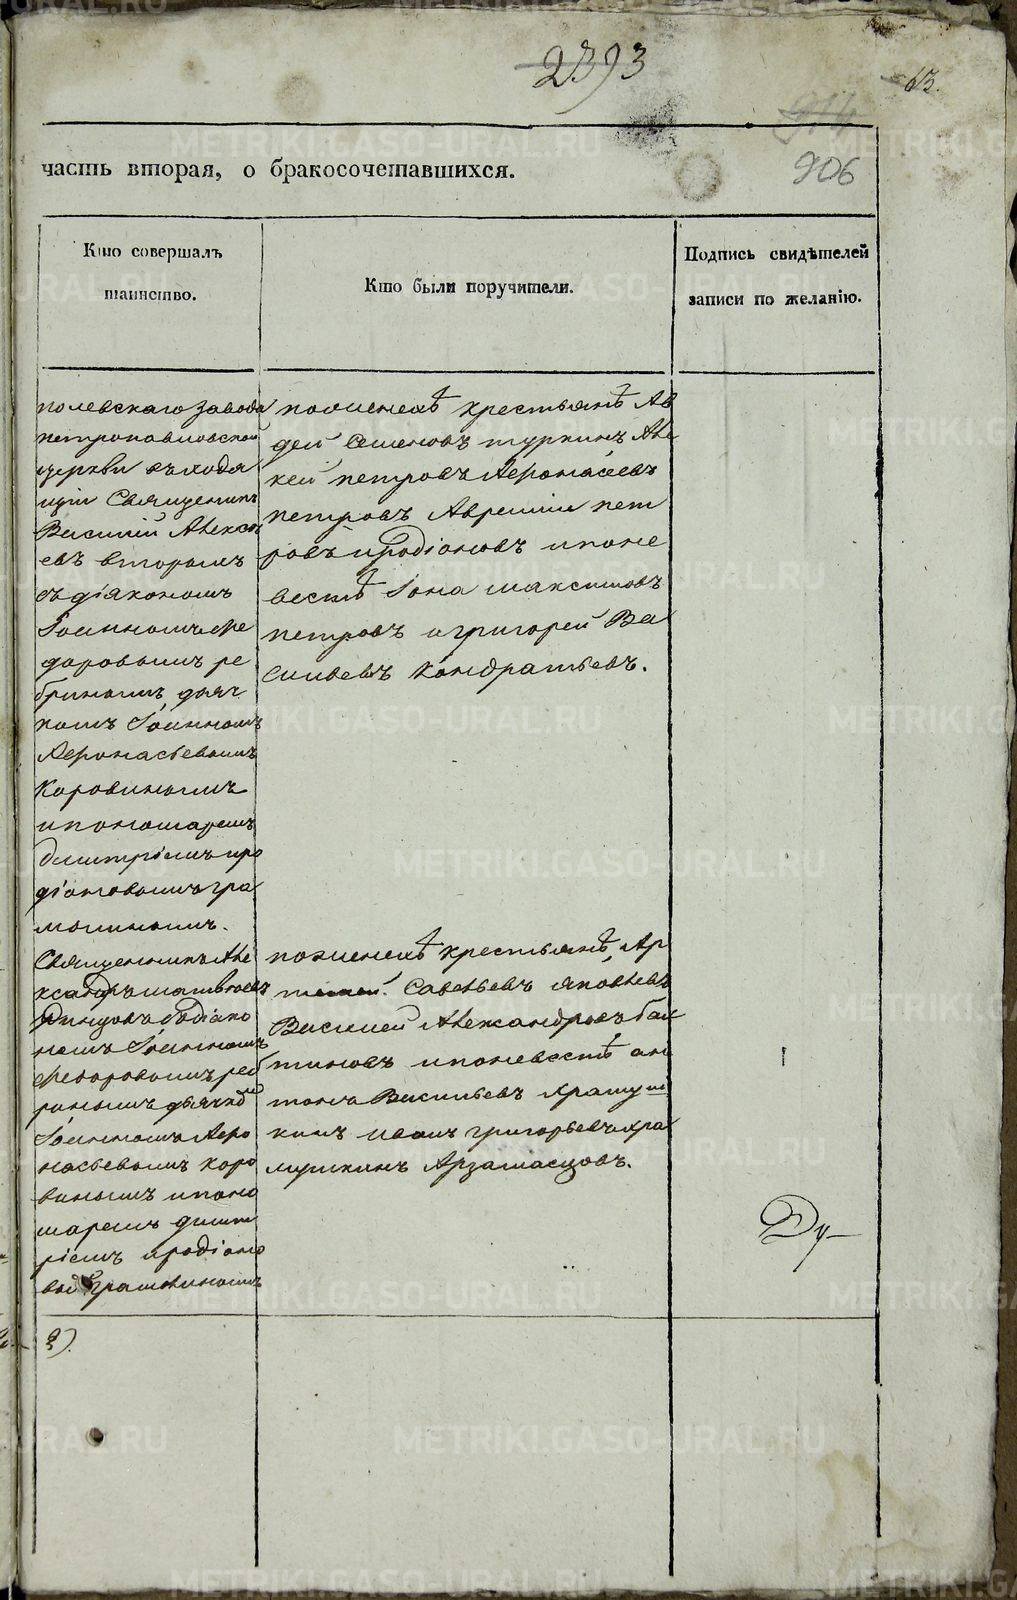 2393
13.
914
906
часть вторая, о бракосочетавшихся.
Кто совершалъ
таинство.
Кто были поручители.
Подпись свидѣтелей
записи по желанію.
полевскаго завода
петропавловской
церкви
щій Священникъ
Василій Алексѣ
евъ вторымъ
съ діякономъ
Іоанномъ Ѳе
доровымъ ре
бринымъ дьяч
комъ Іоанномъ
Аѳонасьевымъ
Коровинымъ
и пономаремъ
димитріемъ иро
діоновымъ гра
молинымъ.
по женихѣ крестьянъ Ав
дей Семеновъ туркинъ Але
кей петровъ Аѳонасьевъ
петровъ Аврамій пет
ровъ иродіоновъ и по не
вестѣ Іона максимовъ
петровъ и григорей Ва
сильевъ кондратьевъ.
Священникъ Але
ксандръ матвѣевъ
съ діяко
номъ Іоанномъ
Ѳедоровымъ реб
ринымъ дьячкомъ
Іоанномъ Аѳо
насьевымъ коро
винымъ и поно
маремъ дмит
ріемъ иродіоно
вымъ грамолинымъ
по женихѣ крестьянъ, Ар
темей Савельевъ яковлевъ
Василей Александровъ бах
тиновъ и по невестѣ ан
тонъ Васильевъ храмуш
кинъ иванъ григорьевъ хра
мушкинъ Арзамасцовъ.
Ду
2).
METRIKI.GASO-URAL.RU